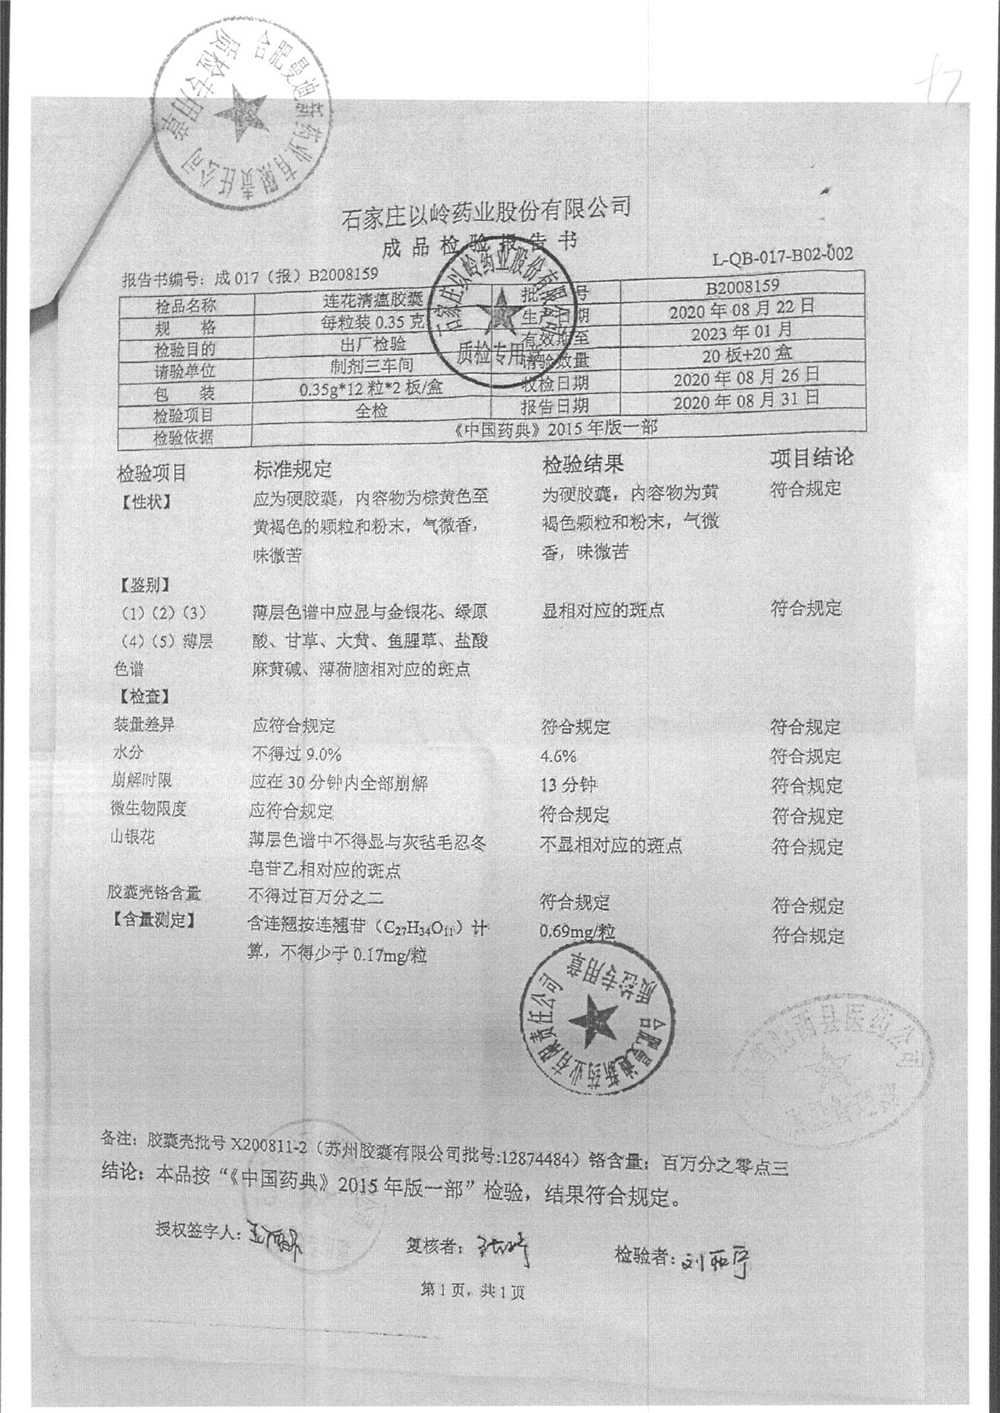 石家庄以岭药业股份有限公司
成品检验报告书
L-QB-017-B02-002
报告书编号：成017（报）B2008159
检品名称 连花清瘟胶囊 批 号 B2008159
规 格 每粒装0.35克 生产日期 2020年08月22日
检验目的 出厂检验 有效期至 2023年01月
请验单位 制剂三车间 请验数量 20板+20盒
包 装 0.35g*12粒*2板/盒 收检日期 2020年08月26日
检验项目 全检 报告日期 2020年08月31日
检验依据 《中国药典》2015年版一部
石家庄以岭药业股份有限公司
质检专用章
检验项目 标准规定 检验结果 项目结论
【性状】 应为硬胶囊，内容物为棕黄色至 为硬胶囊，内容物为黄 符合规定
黄褐色的颗粒和粉末，气微香， 褐色颗粒和粉末，气微
味微苦 香，味微苦
【鉴别】
（1）（2）（3） 薄层色谱中应显与金银花、绿原 显相对应的斑点 符合规定
（4）（5）薄层 酸、甘草、大黄、鱼腥草、盐酸
色谱 麻黄碱、薄荷脑相对应的斑点
【检查】
装量差异 应符合规定 符合规定 符合规定
水分 不得过9.0% 4.6% 符合规定
崩解时限 应在30分钟内全部崩解 13分钟 符合规定
微生物限度 应符合规定 符合规定 符合规定
山银花 薄层色谱中不得显与灰毡毛忍冬 不显相对应的斑点 符合规定
皂苷乙相对应的斑点
胶囊壳铬含量 不得过百万分之二 符合规定 符合规定
【含量测定】 含连翘按连翘苷（C27H34O11）计 0.69mg/粒 符合规定
算，不得少于0.17mg/粒
合肥曼迪新药业有限责任公司
质检专用章
备注：胶囊壳批号X200811-2（苏州胶囊有限公司批号:12874484）铬含量：百万分之零点三
结论：本品按“《中国药典》2015年版一部”检验，结果符合规定。
授权签字人： 复核者： 检验者：刘亚宁
第1页，共1页